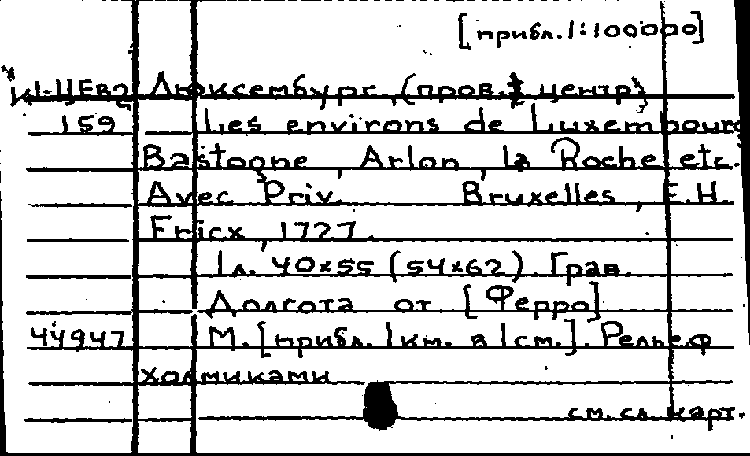 [прибл. 1:100000]
К1-ЦЕв2 Люксембург, (пров. центр)
159 Les environs de Luxembourg
Bastogne, Arlon, la Roche etc.
Avec Priv. Bruxelles, E.H.
Fricx, 1727.
1 л. 40x55 (54x62). Грав.
Долгота от [Ферро]
44947 М. [прибл. 1 км. в 1 см.]. Рельеф
холмиками
см. сл. карт.